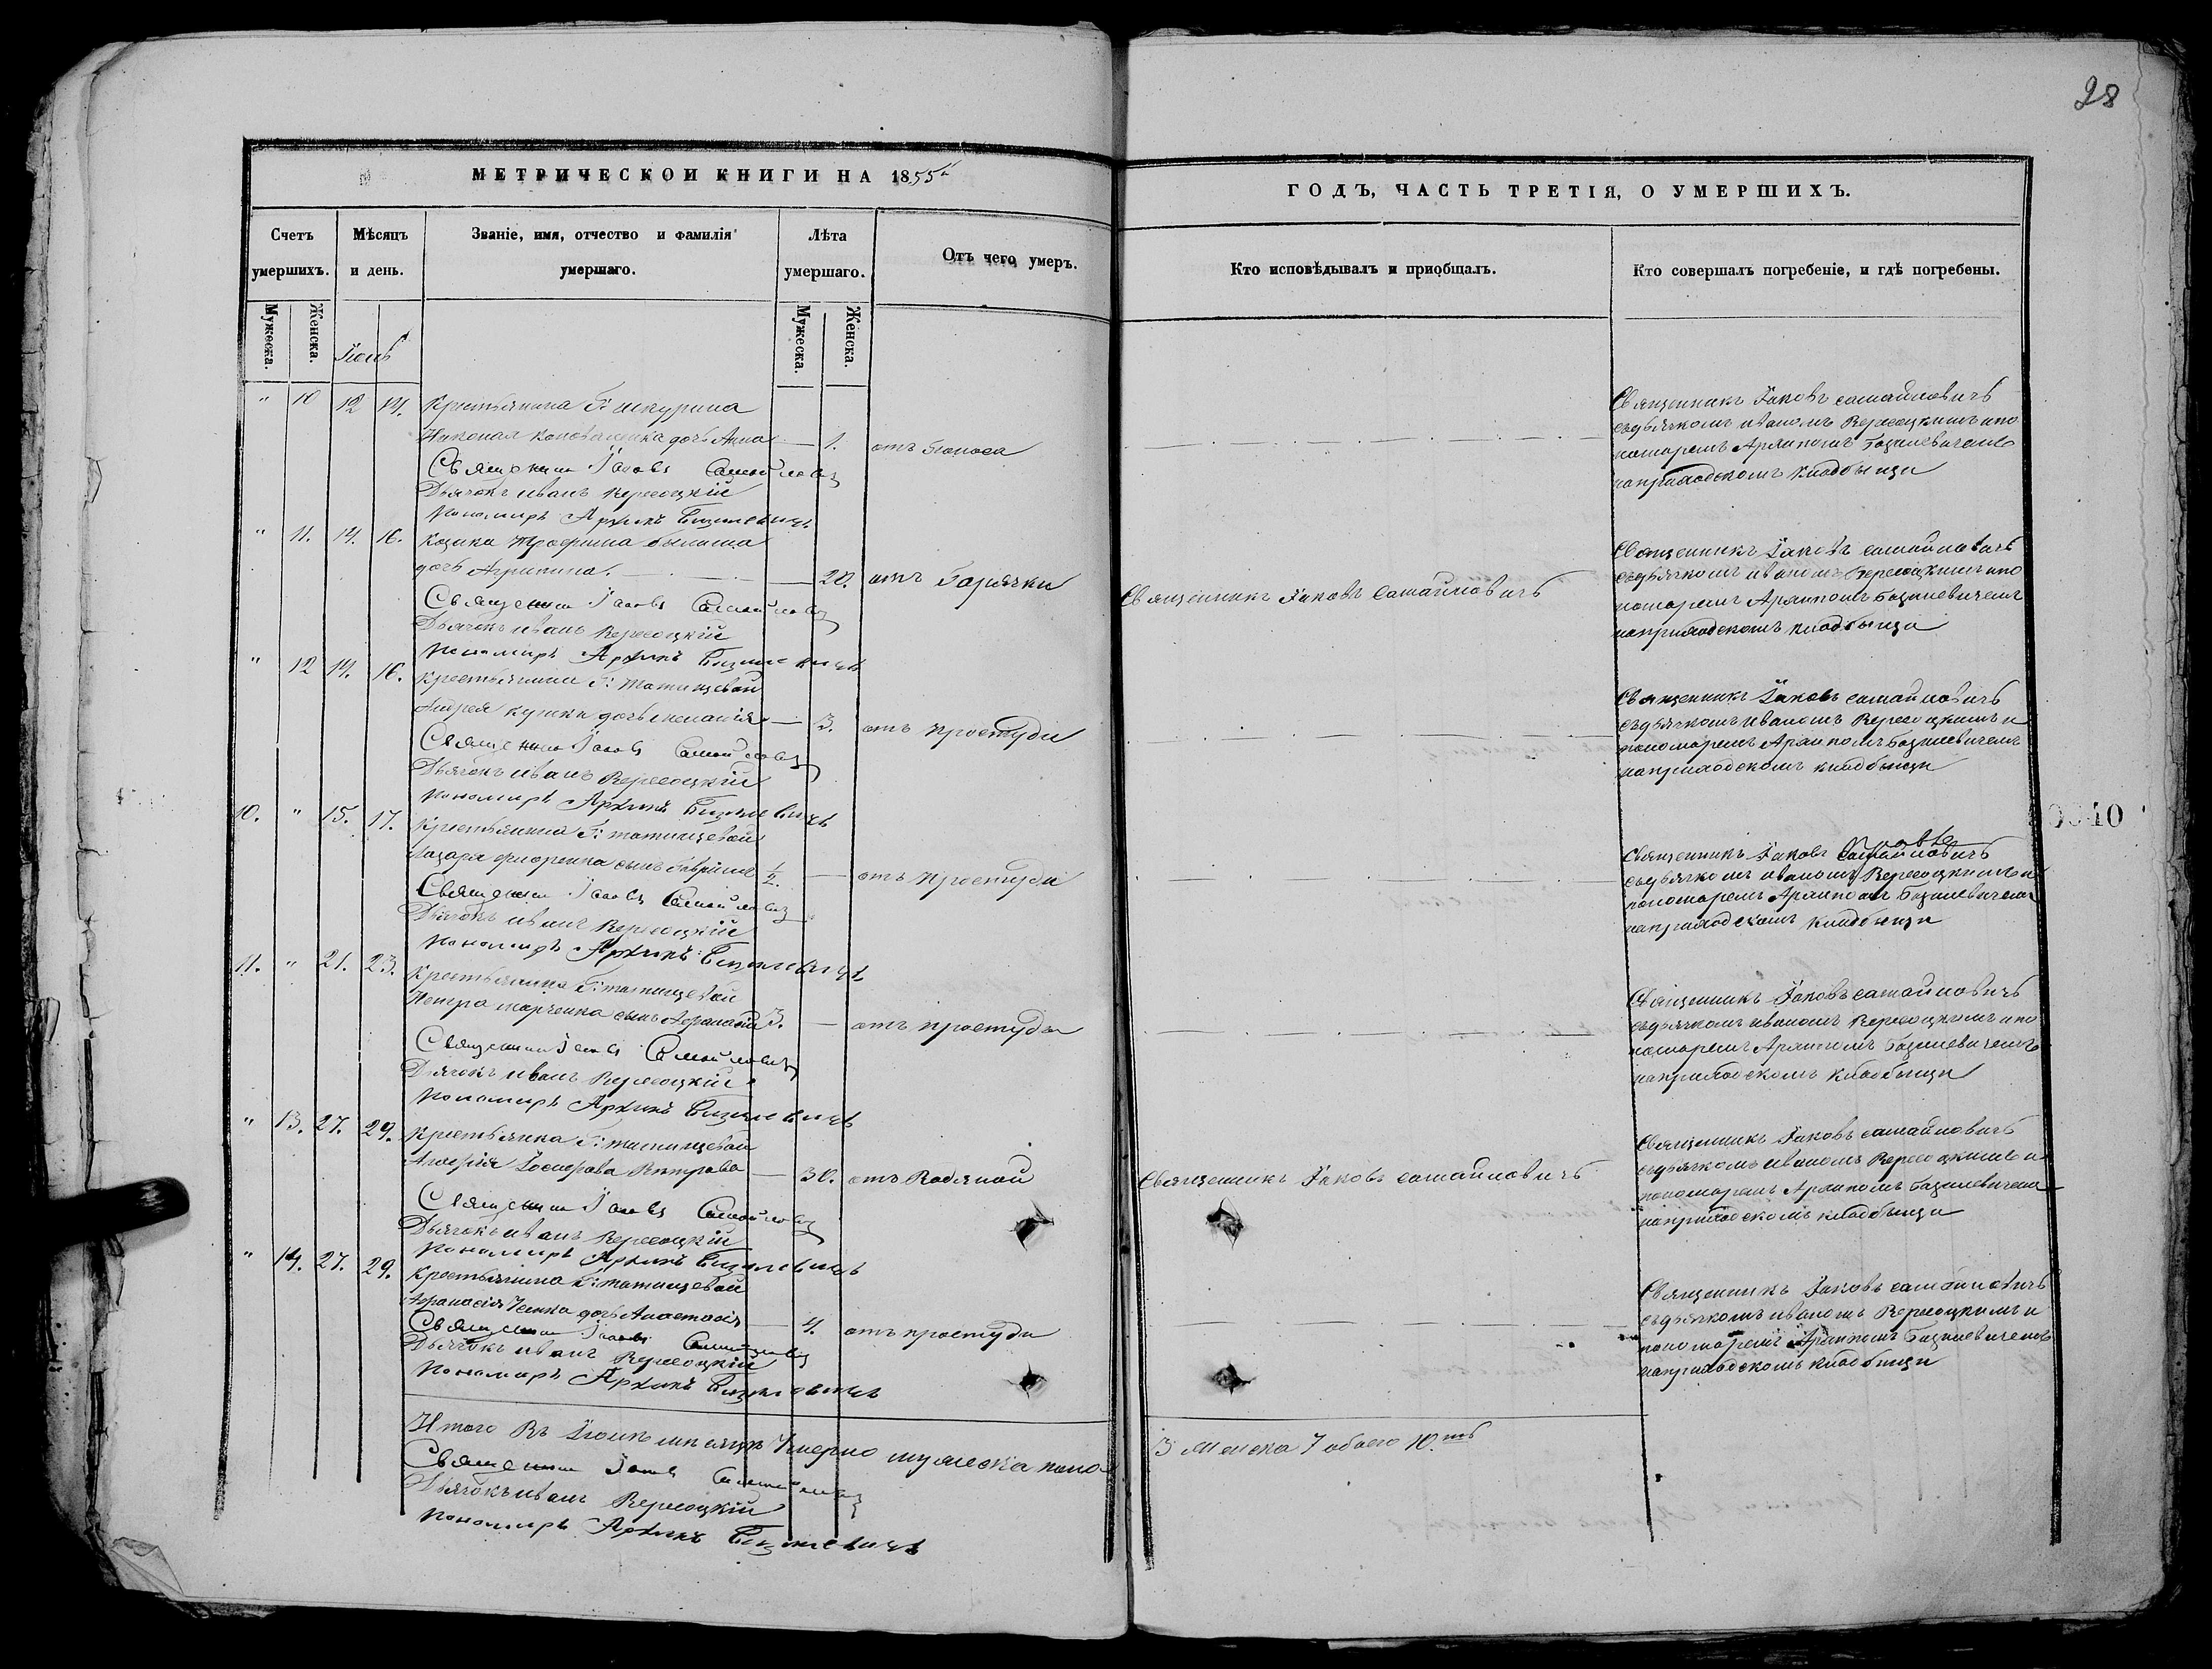 28
МЕТРИЧЕСКОЙ КНИГИ НА 1855й
ГОДЪ, ЧАСТЬ ТРЕТІЯ, О УМЕРШИХЪ.
Счетъ умершихъ.
Мѣсяцъ и день.
Званіе, имя, отчество и фамилія умершаго.
Лѣта умершаго.
Отъ чего умеръ.
Кто исповѣдывалъ и приобщалъ.
Кто совершалъ погребеніе, и гдѣ погребены.
Мужеска.
Женска.
Мужеска.
Женска.
Іюнь
" 10 12 14. Крестьянина Г: шкурина
Николая Коноваленка дочь Анна — 1. отъ поноса
Священникъ Іаковъ Самойловичъ
Дьячокъ иванъ Вересоцкій
Пономарь Архипъ Базилевичъ
Священникъ Іаковъ самайловичъ
съдьячкомъ иваномъ Вересоцкимъ ипо
номаремъ Архипомъ Базилевичемъ
наприходскомъ кладбищи
" 11. 14. 16. Козака Трофима
дочь Агрипина. — 20. отъ Горячки
Священникъ Іаковъ Самойловичъ
Дьячокъ иванъ Вересоцкій
Пономарь Архипъ Базилевичъ
Священникъ Іаковъ самайловичъ
Священникъ Іаковъ самайловичъ
съдьячкомъ иваномъ Вересоцкимъ ипо
номаремъ Архипомъ Базилевичемъ
наприходскомъ кладбищи
" 12 14. 16. Крестьянина Г: Татищевой
Андрея дочь — 3. отъ простуди
Священникъ Іаковъ Самойловичъ
Дьячокъ иванъ Вересоцкій
Пономарь Архипъ Базилевичъ
Священникъ Іаковъ самайловичъ
съдьячкомъ иваномъ Вересоцкимъ и
пономаремъ Архипомъ Базилевичемъ
наприходскомъ кладбищи
10. " 15. 17. Крестьянина Г: татищевой
Лазаря сынъ Гавріилъ 1/2. — отъ простуди
Священникъ Іаковъ Самойловичъ
Дьячокъ иванъ Вересоцкій
Пономарь Архипъ Базилевичъ
Священникъ Іаковъ Самайловичъ
съдьячкомъ иваномъ Вересоцкимъ и
пономаремъ Архипомъ Базилевичемъ
наприходскомъ кладбищи
11. " 21. 23. Крестьянина Г: татищевой
Петра марченка сынъ Афанасій 3. — отъ простуды
Священникъ Іаковъ Самойловичъ
Дьячокъ иванъ Вересоцкій
Пономарь Архипъ Базилевичъ
Священникъ Іаковъ самайловичъ
съдьячкомъ иваномъ Вересоцкимъ ипо
номаремъ Архипомъ Базилевичемъ
наприходскомъ кладбищи
" 13. 27. 29. Крестьянка Г: татищевой
Іосифова — 30. отъ Водяной
Священникъ Іаковъ Самойловичъ
Дьячокъ иванъ Вересоцкій
Пономарь Архипъ Базилевичъ
Священникъ Іаковъ самайловичъ
Священникъ Іаковъ самайловичъ
съдьячкомъ иваномъ Вересоцкимъ и
пономаремъ Архипомъ Базилевичемъ
наприходскомъ кладбищи
" 14. 27. 29. Крестьянина Г: татищевой
Афанасія дочь Анастасія — 4. отъ простуди
Священникъ Іаковъ Самойловичъ
Дьячокъ иванъ Вересоцкій
Пономарь Архипъ Базилевичъ
Священникъ Іаковъ самайловичъ
съдьячкомъ иваномъ Вересоцкимъ и
пономаремъ Архипомъ Базилевичемъ
наприходскомъ кладбищи
Итого Въ Іюнѣ мѣсяцѣ Умерло мужеска пола 3 женска 7 обоего 10.ть
Священникъ Іаковъ Самойловичъ
Дьячокъ иванъ Вересоцкій
Пономарь Архипъ Базилевичъ